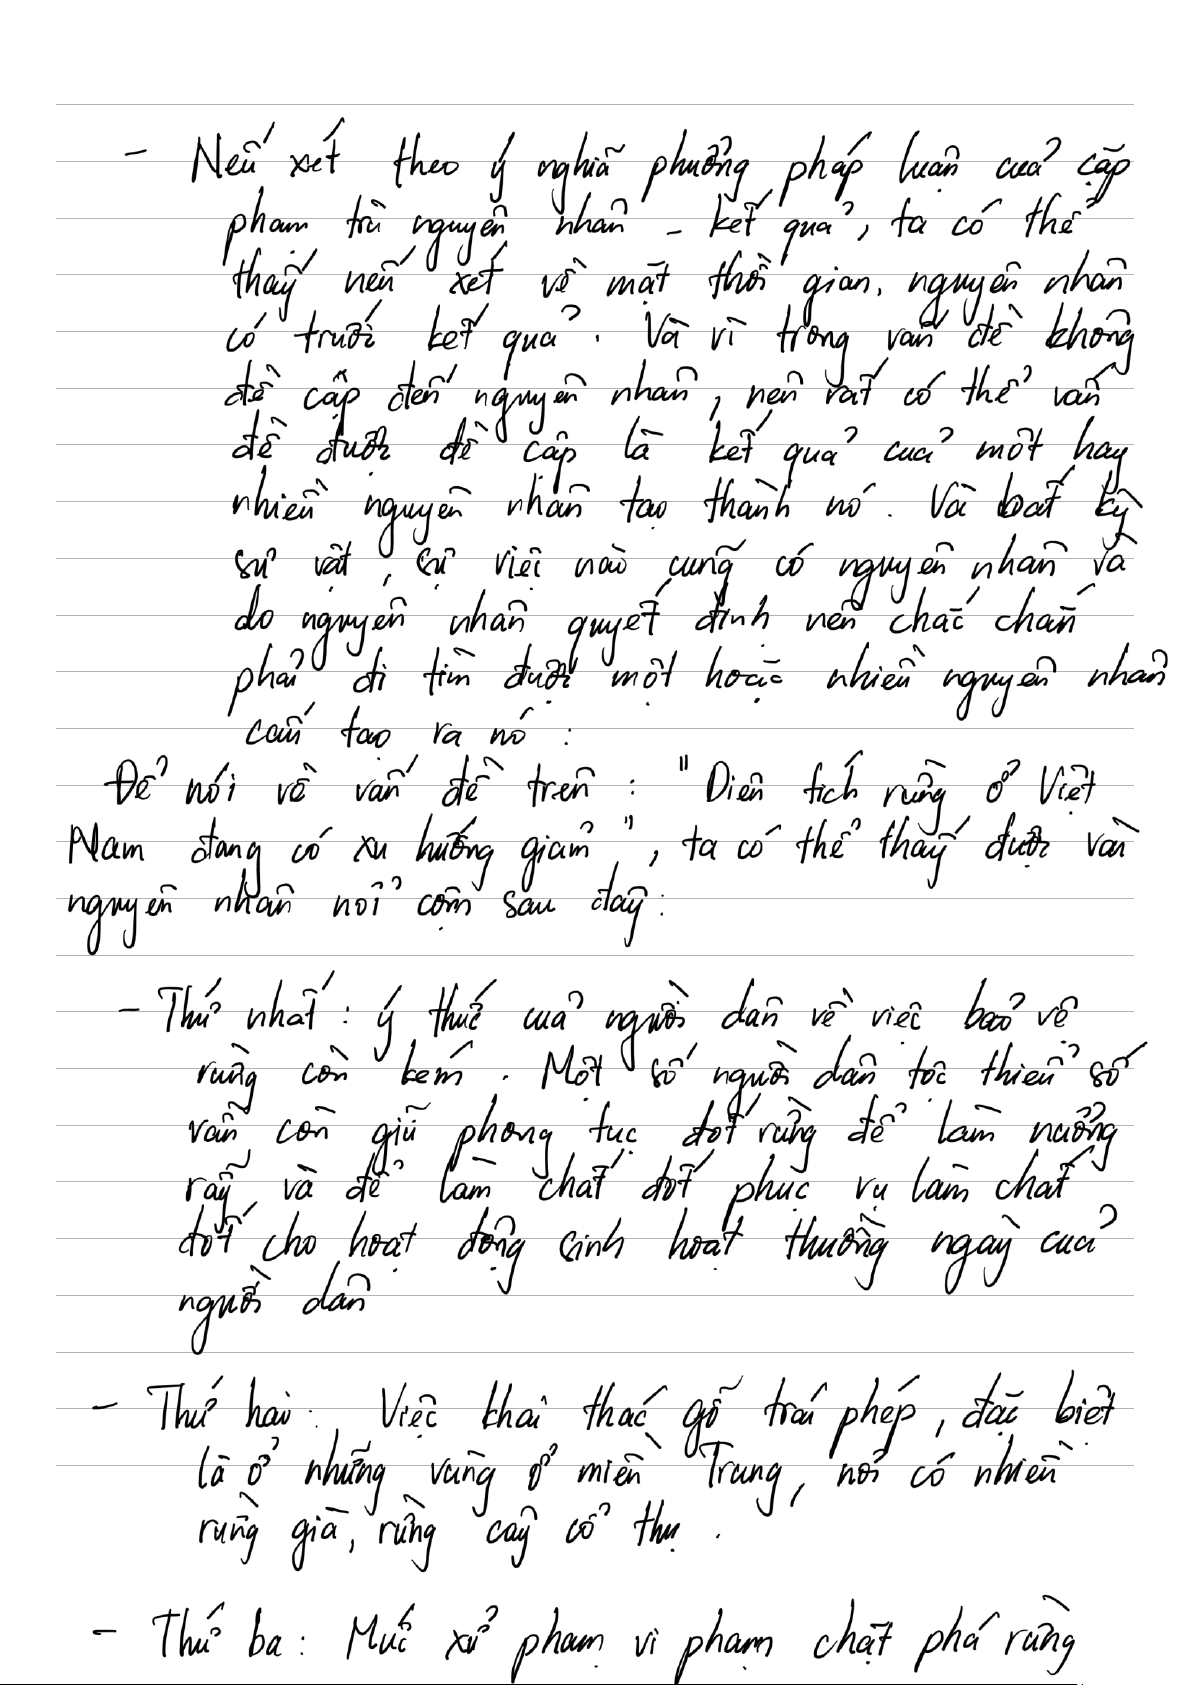 - Nếu xét theo ý nghĩa phương pháp luận của cặp
phạm trù nguyên nhân - kết quả, ta có thể
thấy nếu xét về mặt thời gian, nguyên nhân
có trước kết quả. Và vì trong vấn đề không
đề cập đến nguyên nhân, nên rất có thể vấn
đề được đề cập là kết quả của một hay
nhiều nguyên nhân tạo thành nó. Và bất kỳ
sự vật, sự việc nào cũng có nguyên nhân và
do nguyên nhân quyết định nên chắc chắn
phải đi tìm được một hoặc nhiều nguyên nhân
cấu tạo ra nó:
Để nói về vấn đề trên: "Diện tích rừng ở Việt
Nam đang có xu hướng giảm", ta có thể thấy được vài
nguyên nhân nổi cộm sau đây:
- Thứ nhất: ý thức của người dân về việc bảo vệ
rừng còn kém. Một số người dân tộc thiểu số
vẫn còn giữ phong tục đốt rừng để làm nương
rẫy và để làm chất đốt phục vụ làm chất
đốt cho hoạt động sinh hoạt thường ngày của
người dân
- Thứ hai: Việc khai thác gỗ trái phép, đặc biệt
là ở những vùng ở miền Trung, nơi có nhiều
rừng già, rừng cây cổ thụ.
- Thứ ba: Mức xử phạm vi phạm chặt phá rừng